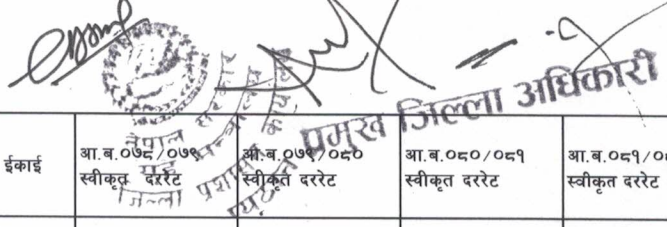 प्रमुख जिल्ला अधिकारी
नेपाल सरकार
जिल्ला प्रशासन
ईकाई
आ.ब.०७८/०७९ स्वीकृत दररेट
आ.ब.०७९/०८० स्वीकृत दररेट
आ.ब.०८०/०८१ स्वीकृत दररेट
आ.ब.०८१/ स्वीकृत दररेट